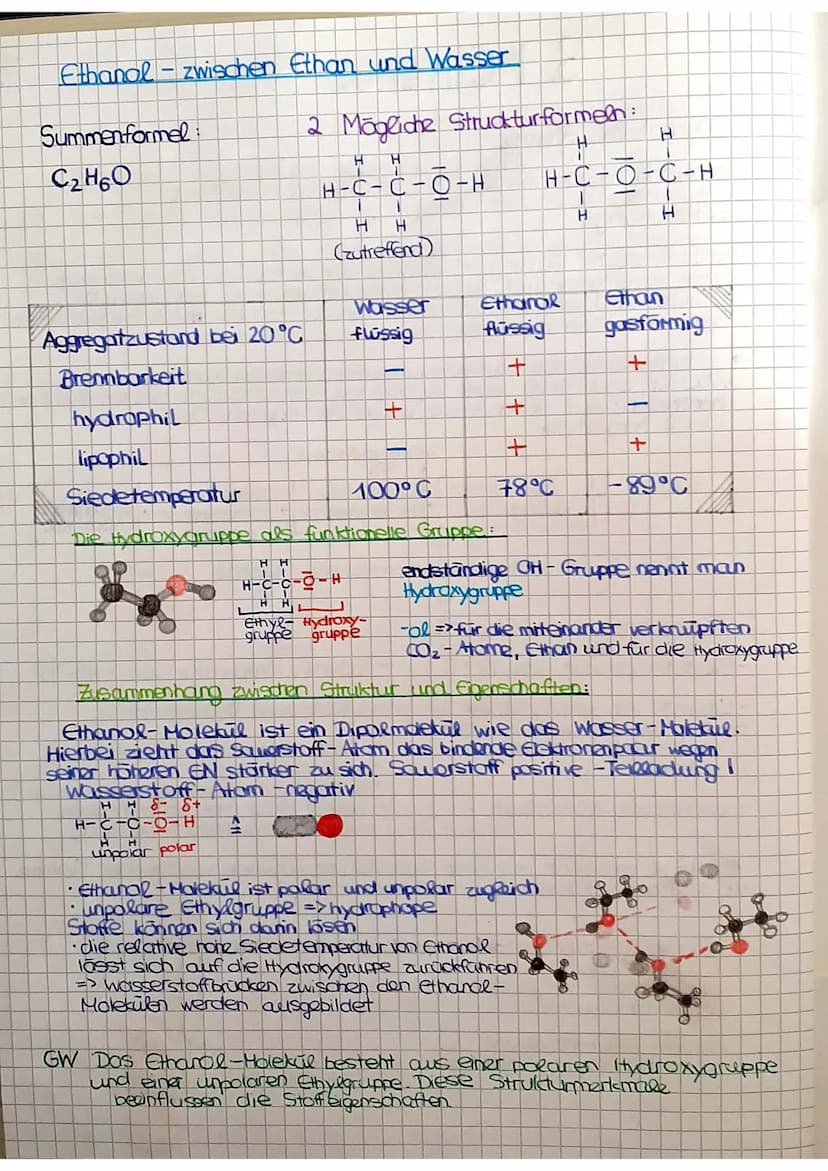 Ethanol - zwischen Ethan und Wasser
Summenformel:
C₂H₆O
2 Mögliche Struckturformeln:
H H
H-C-C-O-H
H H
(zutreffend)
H H
H-C-O-C-H
H H
Wasser Ethanol Ethan
Aggregatzustand bei 20°C flüssig flüssig gasförmig
Brennbarkeit - + +
hydrophil + + -
lipophil - + +
Siedetemperatur 100°C 78°C -89°C
Die Hydroxygruppe als funktionelle Gruppe:
H H
H-C-C-O-H
H H
Ethyl- Hydroxy-
gruppe gruppe
endständige OH-Gruppe nennt man
Hydroxygruppe
-ol => für die miteinander verknüpften
CO₂-Atome, Ethan und für die Hydroxygruppe
Zusammenhang zwischen Struktur und Eigenschaften:
Ethanol-Molekül ist ein Dipolmolekül wie das Wasser-Molekül.
Hierbei zieht das Sauerstoff-Atom das bindende Elektronenpaar wegen
seiner höheren EN stärker zu sich. Sauerstoff positive -Teilladung!
Wasserstoff-Atom -negativ
H H δ- δ+
H-C-C-O-H ≙
H H
unpolar polar
· Ethanol-Molekül ist polar und unpolar zugleich
· unpolare Ethylgruppe => hydrophope
Stoffe können sich darin lösen
· die relative hohe Siedetemperatur von Ethanol
lässt sich auf die Hydroxygruppe zurückführen
=> Wasserstoffbrücken zwischen den Ethanol-
Molekülen werden ausgebildet
GW Das Ethanol-Molekül besteht aus einer polaren Hydroxygruppe
und einer unpolaren Ethylgruppe. Diese Strukturmerkmale
beeinflussen die Stoffeigenschaften